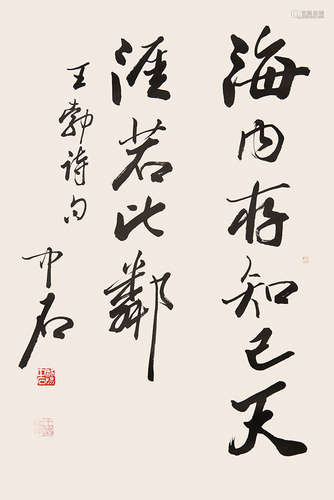 海内存知己天
涯若比邻
王勃诗句
中石